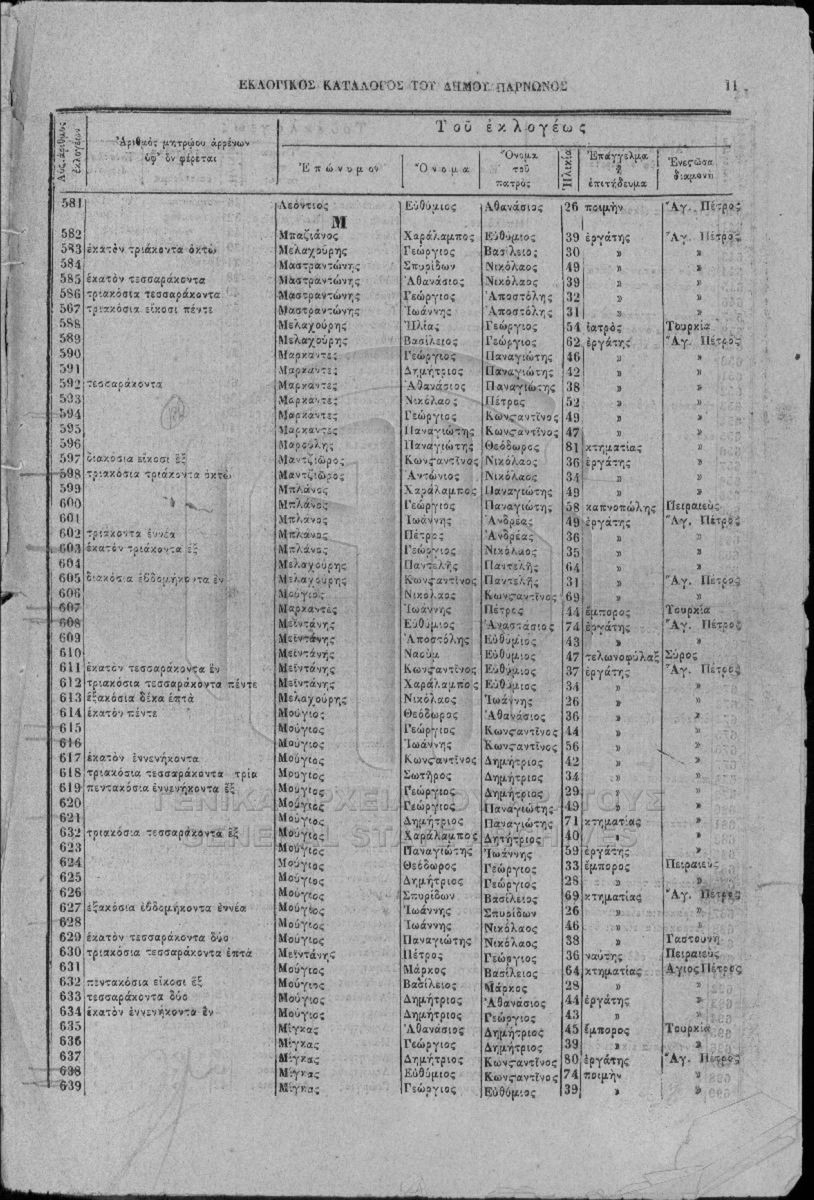 ΕΚΛΟΓΙΚΟΣ ΚΑΤΑΛΟΓΟΣ ΤΟΥ ΔΗΜΟΥ ΠΑΡΝΩΝΟΣ 11
Αὔξ. ἀριθμὸς ἐκλογέων Ἀριθμὸς μητρῴου ἀρρένων ὑφ' ὃν φέρεται Τοῦ ἐκλογέως
Ἐπώνυμον Ὄνομα Ὄνομα τοῦ πατρὸς Ἡλικία Ἐπάγγελμα ἢ ἐπιτήδευμα Ἐνεστῶσα διαμονὴ
581 Λεόντιος Εὐθύμιος Ἀθανάσιος 26 ποιμὴν Ἅγ. Πέτρος
Μ
582 Μπαζιάνος Χαράλαμπος Εὐθύμιος 39 ἐργάτης Ἅγ. Πέτρος
583 ἑκατὸν τριάκοντα ὀκτὼ Μελαχούρης Γεώργιος Βασίλειος 30 » »
584 Μαστραντώνης Σπυρίδων Νικόλαος 49 » »
585 ἑκατὸν τεσσαράκοντα Μαστραντώνης Ἀθανάσιος Νικόλαος 39 » »
586 τριακόσια τεσσαράκοντα Μαστραντώνης Γεώργιος Ἀποστόλης 32 » »
567 τριακόσια εἴκοσι πέντε Μαστραντώνης Ἰωάννης Ἀποστόλης 31 » »
588 Μελαχούρης Ἠλίας Γεώργιος 54 ἰατρὸς Τουρκία
589 Μελαχούρης Βασίλειος Γεώργιος 62 ἐργάτης Ἅγ. Πέτρος
590 Μαρκαντὲς Γεώργιος Παναγιώτης 46 » »
591 Μαρκαντὲς Δημήτριος Παναγιώτης 42 » »
592 τεσσαράκοντα Μαρκαντὲς Ἀθανάσιος Παναγιώτης 38 » »
593 Μαρκαντὲς Νικόλαος Πέτρος 52 » »
594 Μαρκαντὲς Γεώργιος Κωνσταντῖνος 49 » »
595 Μαρκαντὲς Παναγιώτης Κωνσταντῖνος 47 » »
596 Μαρούλης Παναγιώτης Θεόδωρος 81 κτηματίας »
597 διακόσια εἴκοσι ἓξ Μαντζιῶρος Κωνσταντῖνος Νικόλαος 36 ἐργάτης »
598 τριακόσια τριάκοντα ὀκτὼ Μαντζιῶρος Ἀντώνιος Νικόλαος 34 » »
599 Μπλάνος Χαράλαμπος Παναγιώτης 49 » »
600 Μπλάνος Γεώργιος Παναγιώτης 58 καπνοπώλης Πειραιεὺς
601 Μπλάνος Ἰωάννης Ἀνδρέας 49 ἐργάτης Ἅγ. Πέτρος
602 τριάκοντα ἐννέα Μπλάνος Πέτρος Ἀνδρέας 36 » »
603 ἑκατὸν τριάκοντα ἓξ Μπλάνος Γεώργιος Νικόλαος 35 » »
604 Μελαχούρης Παντελῆς Παντελῆς 64 » »
605 διακόσια ἑβδομήκοντα ἓν Μελαχούρης Κωνσταντῖνος Παντελῆς 31 » Ἅγ. Πέτρος
606 Μούγιος Νικόλαος Κωνσταντῖνος 69 » »
607 Μαρκαντὲς Ἰωάννης Πέτρος 44 ἔμπορος Τουρκία
608 Μεϊντάνης Εὐθύμιος Ἀναστάσιος 74 ἐργάτης Ἅγ. Πέτρος
609 Μεϊντάνης Ἀποστόλης Εὐθύμιος 43 » »
610 Μεϊντάνης Ναοὺμ Εὐθύμιος 47 τελωνοφύλαξ Σύρος
611 ἑκατὸν τεσσαράκοντα ἓν Μεϊντάνης Κωνσταντῖνος Εὐθύμιος 37 ἐργάτης Ἅγ. Πέτρος
612 τριακόσια τεσσαράκοντα πέντε Μεϊντάνης Χαράλαμπος Εὐθύμιος 34 » »
613 ἑξακόσια δέκα ἑπτὰ Μελαχούρης Νικόλαος Ἰωάννης 26 » »
614 ἑκατὸν πέντε Μούγιος Θεόδωρος Ἀθανάσιος 36 » »
615 Μούγιος Γεώργιος Κωνσταντῖνος 44 » »
616 Μούγιος Ἰωάννης Κωνσταντῖνος 56 » »
617 ἑκατὸν ἐννενήκοντα Μούγιος Κωνσταντῖνος Δημήτριος 42 » »
618 τριακόσια τεσσαράκοντα τρία Μούγιος Σωτῆρος Δημήτριος 34 » »
619 πεντακόσια ἐννενήκοντα ἓξ Μούγιος Γεώργιος Δημήτριος 29 » »
620 Μούγιος Γεώργιος Παναγιώτης 49 » »
621 Μούγιος Δημήτριος Παναγιώτης 71 κτηματίας »
632 τριακόσια τεσσαράκοντα ἓξ Μούγιος Χαράλαμπος Δητήτριος 40 » »
623 Μούγιος Παναγιώτης Ἰωάννης 59 ἐργάτης »
624 Μούγιος Θεόδωρος Γεώργιος 33 ἔμπορος Πειραιεὺς
625 Μούγιος Δημήτριος Γεώργιος 28 » »
626 Μούγιος Σπυρίδων Βασίλειος 69 κτηματίας Ἅγ. Πέτρος
627 ἑξακόσια ἑβδομήκοντα ἐννέα Μούγιος Ἰωάννης Σπυρίδων 26 » »
628 Μούγιος Ἰωάννης Νικόλαος 46 » »
629 ἑκατὸν τεσσαράκοντα δύο Μούγιος Παναγιώτης Νικόλαος 38 » Γαστούνη
630 τριακόσια τεσσαράκοντα ἑπτὰ Μεϊντάνης Πέτρος Γεώργιος 36 ναύτης Πειραιεὺς
631 Μούγιος Μάρκος Βασίλειος 64 κτηματίας Ἅγιος Πέτρος
632 πεντακόσια εἴκοσι ἓξ Μούγιος Βασίλειος Μάρκος 28 » »
633 τεσσαράκοντα δύο Μούγιος Δημήτριος Ἀθανάσιος 44 ἐργάτης »
634 ἑκατὸν ἐννενήκοντα ἓν Μούγιος Δημήτριος Γεώργιος 43 » »
635 Μίγκας Ἀθανάσιος Δημήτριος 45 ἔμπορος Τουρκία
636 Μίγκας Γεώργιος Δημήτριος 39 » »
637 Μίγκας Δημήτριος Κωνσταντῖνος 80 ἐργάτης Ἅγ. Πέτρος
638 Μίγκας Εὐθύμιος Κωνσταντῖνος 74 ποιμὴν »
639 Μίγκας Γεώργιος Εὐθύμιος 39 » »
ΓΕΝΙΚΑ ΑΡΧΕΙΑ ΤΟΥ ΚΡΑΤΟΥΣ
GENERAL STATE ARCHIVES